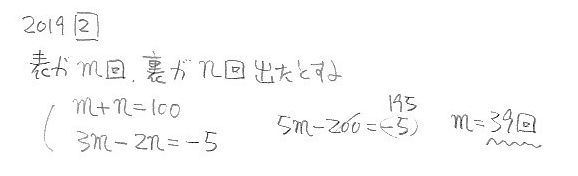 2019 2
表がm回、裏がn回出たとすよ
m+n=100
3m-2n=-5
5m-200=(-5) 195
m=39回